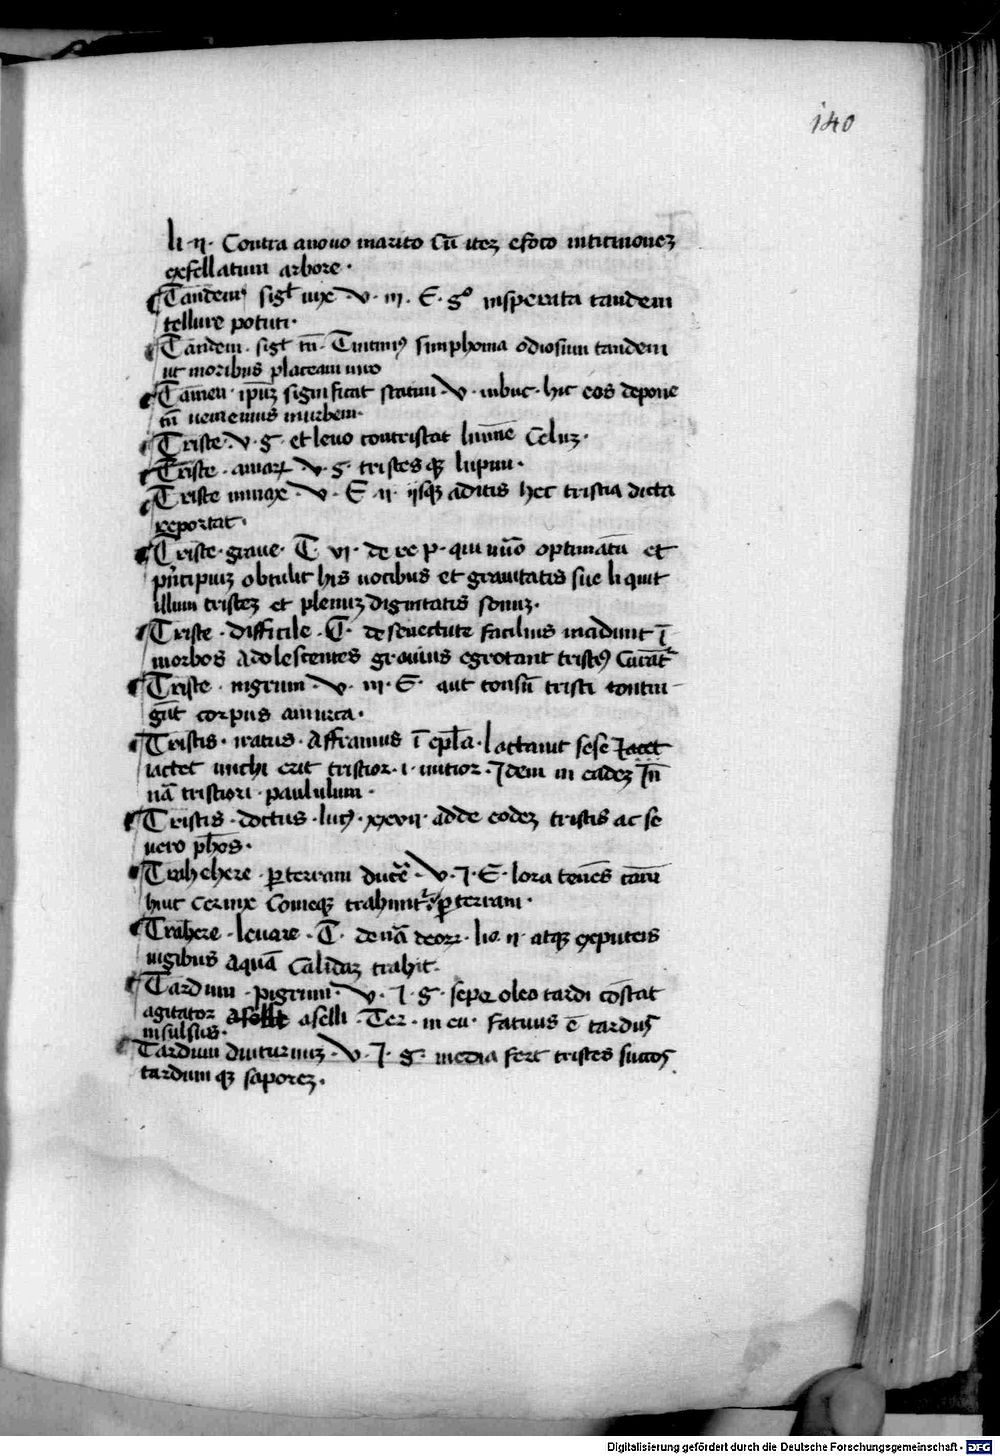 140
li· ii· Contra a nouo marito Cũ iteȝ e foro intitmoneȝ
exfellatum arbore·
Tandem sigt uix· v· iii· E· g° insperata tandem
tellure potuti·
Tandem· sigt tñ· Titiniꝰ simphonia odiosum tandem
ut moribus placeam uiro
Tamen· ipuȝ significat statim· v· in buc· hic eos depone
tñ ueniemus in urbem·
Triste· v· g· et leuo contristat lumine Celuȝ·
Triste· amaꝝ v· g· tristesqȝ lupini·
Triste minax· v· E· ii· ijsqȝ aditis hec tristia dicta
reportat·
Triste· graue· T· vi· de re p· qui uño optimatũ et
pñcipuiȝ obtulit his uocibus et grauitatis sue li quit
illum tristeȝ et plenuȝ dignitatis sonuȝ·
Triste· difficile· T· de senectute facilius incidunt ĩ
morbos Adolescentes grauius egrotant tristiꝰ Curãt᷑
Triste· nigrum· v· iii· G· aut tonsũ tristi contin
gũt corpus amurca·
Tristis· iratus· Afframus ĩ epl̃a· lactauit sese Jactet
iactet michi erit tristior· i· mitior· Jdem in eadeȝ
nã tristiori· paululum·
Tristis· doctus· lucꝰ· xxvii· adde eodeȝ tristis ac se
uero ph̃os·
Trahehere· ꝑ terram ducẽ· v· J· E· lora tenẽs tamẽ
huic Ceruix Comeqȝ trahunt᷑ ꝑ terram·
Trahere· leuare· T· de nã deoꝝ· lio ii· atqȝ ex puteis
iugibus Aquã Calidaȝ trahit·
Tardum· pigrum· v· J· g· sepe oleo tardi cõstat
agitator aselli· Ter· in eu· fatuus ẽ tardus
insulsus·
Tardum diuturnuȝ· v· J· g· media fert tristes succos
tardum qȝ saporeȝ·
Digitalisierung gefördert durch die Deutsche Forschungsgemeinschaft - DFG